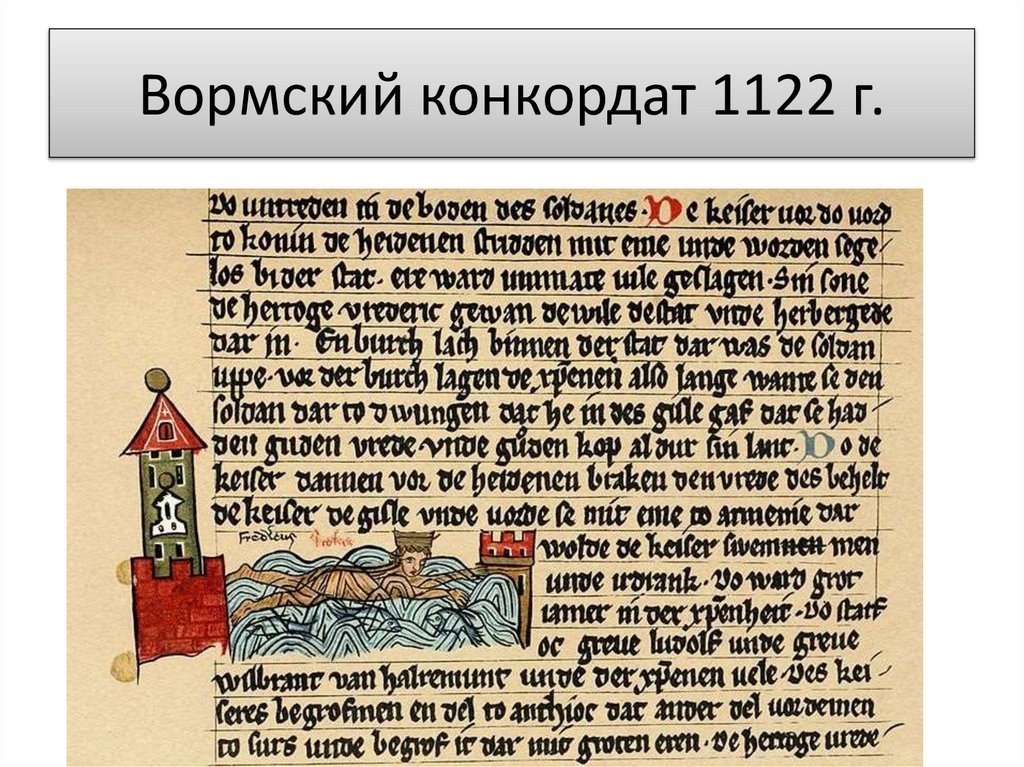 Вормский конкордат 1122 г.
vo untreden in de boden des soldanes. D e keiser vor do vord
to konin de heidenen stridden mit eme unde worden sege
los bi der stat. ere ward unmate vile geslagen. Sin sone
de hertoge vrederic gewan de wile de stat unde herbergede
dar in. En burch lach binnen der stat dar was de soldan
uppe. vor der burch lagen de xpenen also lange wante se den
soldan dar to dwungen dat he in des gisle gaf dar se had
den guden vrede. vnde guden kop al dur sin lant. D o de
keiser dannen vor de heidenen braken den vrede des behelt
de keiser de gisle vnde vorde se mit eme to armenie dar
Fredicus
wolde de keiser swemmen men
unde udrank. Do ward grot
iamer in der xpenheit. Do starf
oc greue ludolf unde greue
wilbrant van halremunt unde der xpenen vele. Des kei
seres begrofmen en del to anthioc dat ander del vordemen
to surs unde begrof it dar mit groten eren. De hertoge vrede